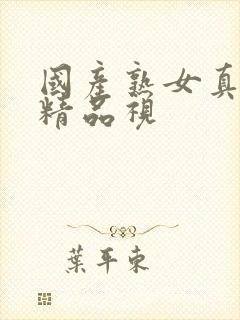 國產熟女真
精品視
葉平東